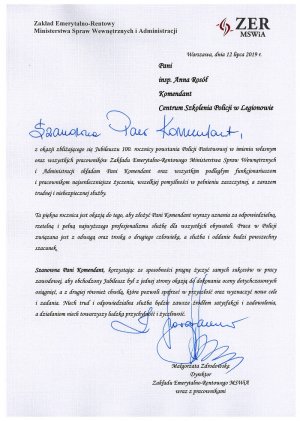 Zakład Emerytalno-Rentowy
Ministerstwa Spraw Wewnętrznych i Administracji
ZER
MSWiA
Warszawa, dnia 12 lipca 2019 r.
Pani
insp. Anna Rosół
Komendant
Centrum Szkolenia Policji w Legionowie
Szanowna Pani Komendant,
z okazji zbliżającego się Jubileuszu 100. rocznicy powstania Policji Państwowej w imieniu własnym
oraz wszystkich pracowników Zakładu Emerytalno-Rentowego Ministerstwa Spraw Wewnętrznych
i Administracji składam Pani Komendant oraz wszystkim podległym funkcjonariuszom
i pracownikom najserdeczniejsze życzenia, wszelkiej pomyślności w pełnieniu zaszczytnej, a zarazem
trudnej i niebezpiecznej służby.
To piękna rocznica jest okazją do tego, aby złożyć Pani Komendant wyrazy uznania za odpowiedzialną,
rzetelną i pełną najwyższego profesjonalizmu służbę dla wszystkich obywateli. Praca w Policji
związana jest z odwagą oraz troską o drugiego człowieka, a służba i oddanie budzi powszechny
szacunek.
Szanowna Pani Komendant, korzystając ze sposobności pragnę życzyć samych sukcesów w pracy
zawodowej, aby obchodzony Jubileusz był z jednej strony okazją do dokonania oceny dotychczasowych
osiągnięć, a z drugiej również chwilą, która pozwoli spojrzeć w przyszłość oraz wyznaczyć nowe cele
i zadania. Niech trud i odpowiedzialna służba będzie zawsze źródłem satysfakcji i zadowolenia,
a działaniom niech towarzyszy ludzka przychylność i życzliwość.
Małgorzata Zdrodowska
Dyrektor
Zakładu Emerytalno-Rentowego MSWiA
wraz z pracownikami